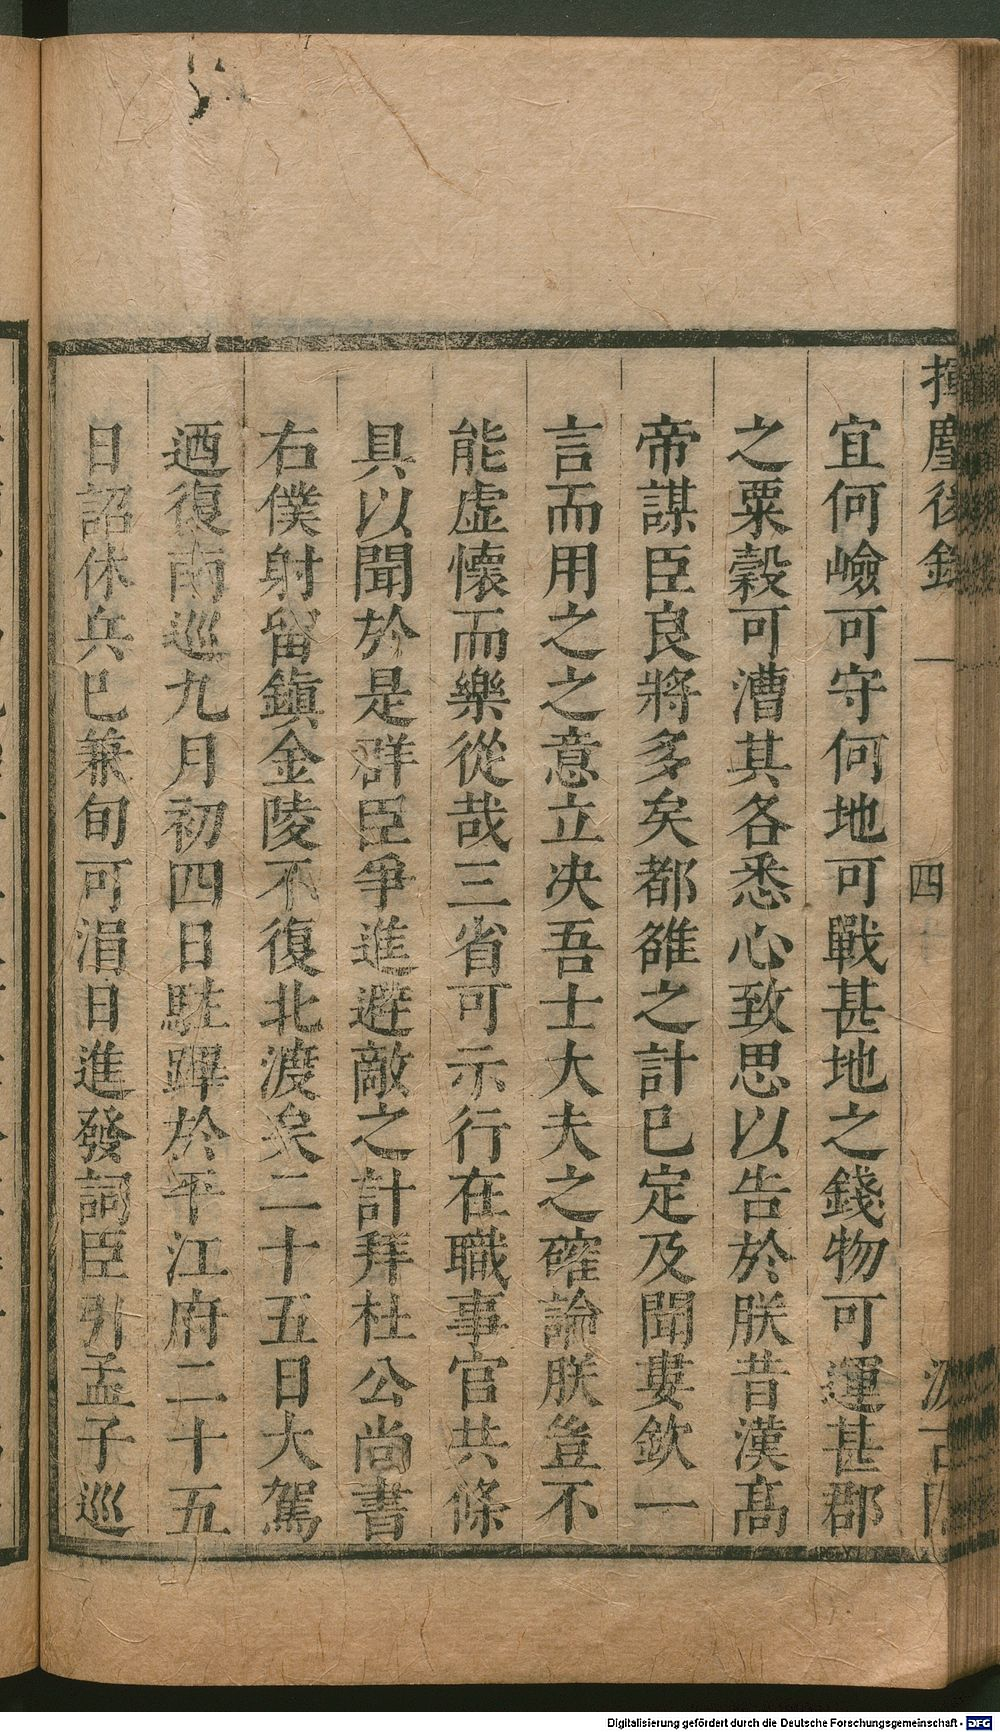 揮麈後錄 一 四 汲古閣
宜何嶮可守何地可戰甚地之錢物可運甚郡
之粟穀可漕其各悉心致思以告於朕昔漢高
帝謀臣良將多矣都雒之計已定及聞婁欽一
言而用之之意立决吾士大夫之確論朕豈不
能虛懷而樂從哉三省可示行在職事官共條
具以聞於是群臣爭進避敵之計拜杜公尚書
右僕射留鎮金陵不復北渡矣二十五日大駕
迺復南巡九月初四日駐蹕於平江府二十五
日詔休兵已兼旬可涓日進發詞臣引孟子巡
Digitalisierung gefördert durch die Deutsche Forschungsgemeinschaft - DFG